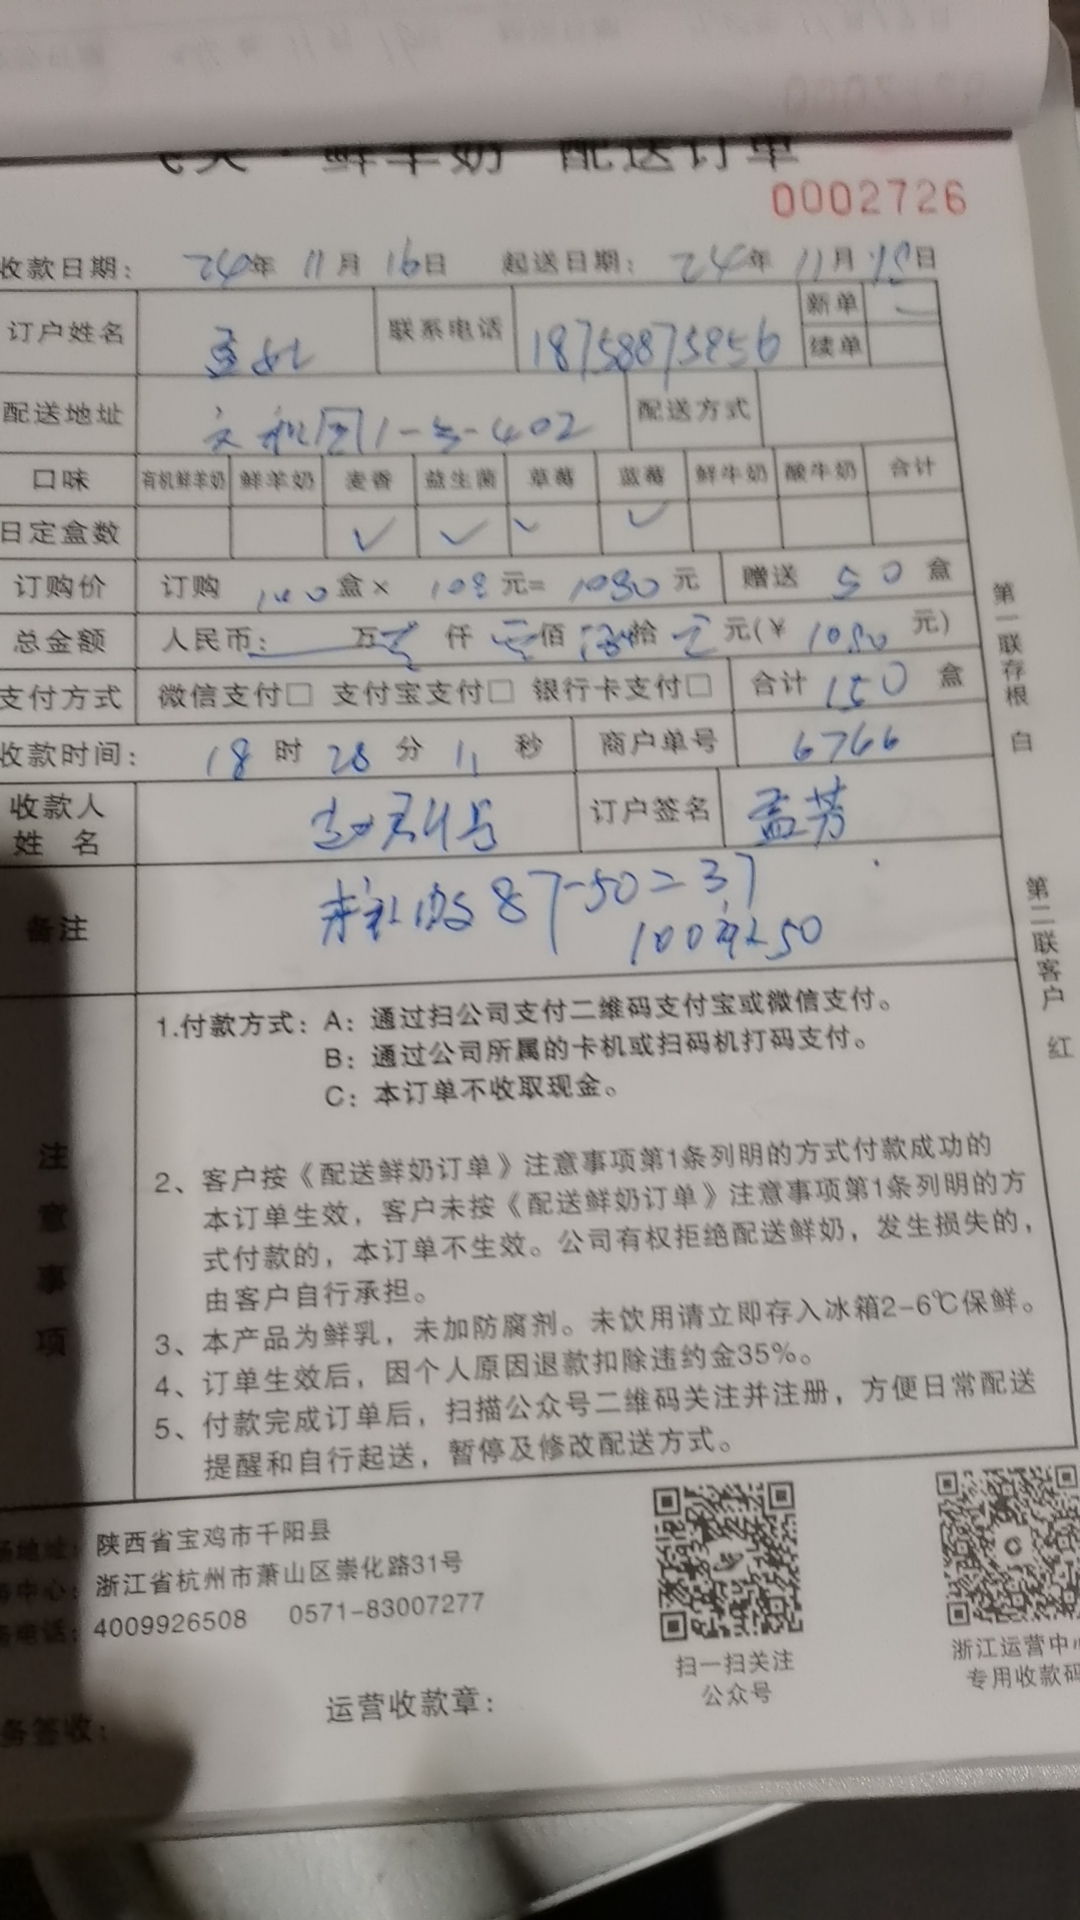 鲜羊奶 配送订单
0002726
收款日期: 24年 11月 16日 起送日期: 24年 11月 18日
订户姓名 联系电话 18758875856 新单
续单
配送地址 1-3-402 配送方式
口味 有机鲜羊奶 鲜羊奶 麦香 益生菌 草莓 蓝莓 鲜牛奶 酸牛奶 合计
日定盒数 ✓ ✓ ✓ ✓
订购价 订购 100 盒× 108 元= 1080 元 赠送 50 盒
总金额 人民币: 万 仟 佰 拾 元(¥ 1080 元)
支付方式 微信支付□ 支付宝支付□ 银行卡支付□ 合计 150 盒
收款时间: 18 时 28 分 11 秒 商户单号 6766
收款人 订户签名 孟芳
姓 名
备注 87-50=37
100送50
注意事项
1.付款方式: A: 通过扫公司支付二维码支付宝或微信支付。
B: 通过公司所属的卡机或扫码机打码支付。
C: 本订单不收取现金。
2、客户按《配送鲜奶订单》注意事项第1条列明的方式付款成功的
本订单生效, 客户未按《配送鲜奶订单》注意事项第1条列明的方
式付款的, 本订单不生效。公司有权拒绝配送鲜奶, 发生损失的,
由客户自行承担。
3、本产品为鲜乳, 未加防腐剂。未饮用请立即存入冰箱2-6℃保鲜。
4、订单生效后, 因个人原因退款扣除违约金35%。
5、付款完成订单后, 扫描公众号二维码关注并注册, 方便日常配送
提醒和自行起送, 暂停及修改配送方式。
第一联存根 白
第二联客户 红
地址: 陕西省宝鸡市千阳县
中心: 浙江省杭州市萧山区崇化路31号
电话: 4009926508 0571-83007277
扫一扫关注
公众号
浙江运营中心
专用收款码
运营收款章:
务签收: